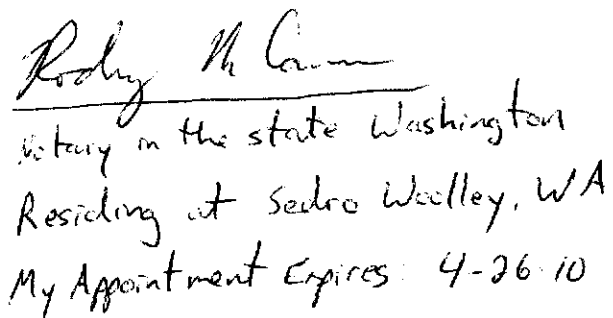 Notary in the state Washington
Residing at Sedro Woolley, WA
My Appointment Expires: 4-26-10